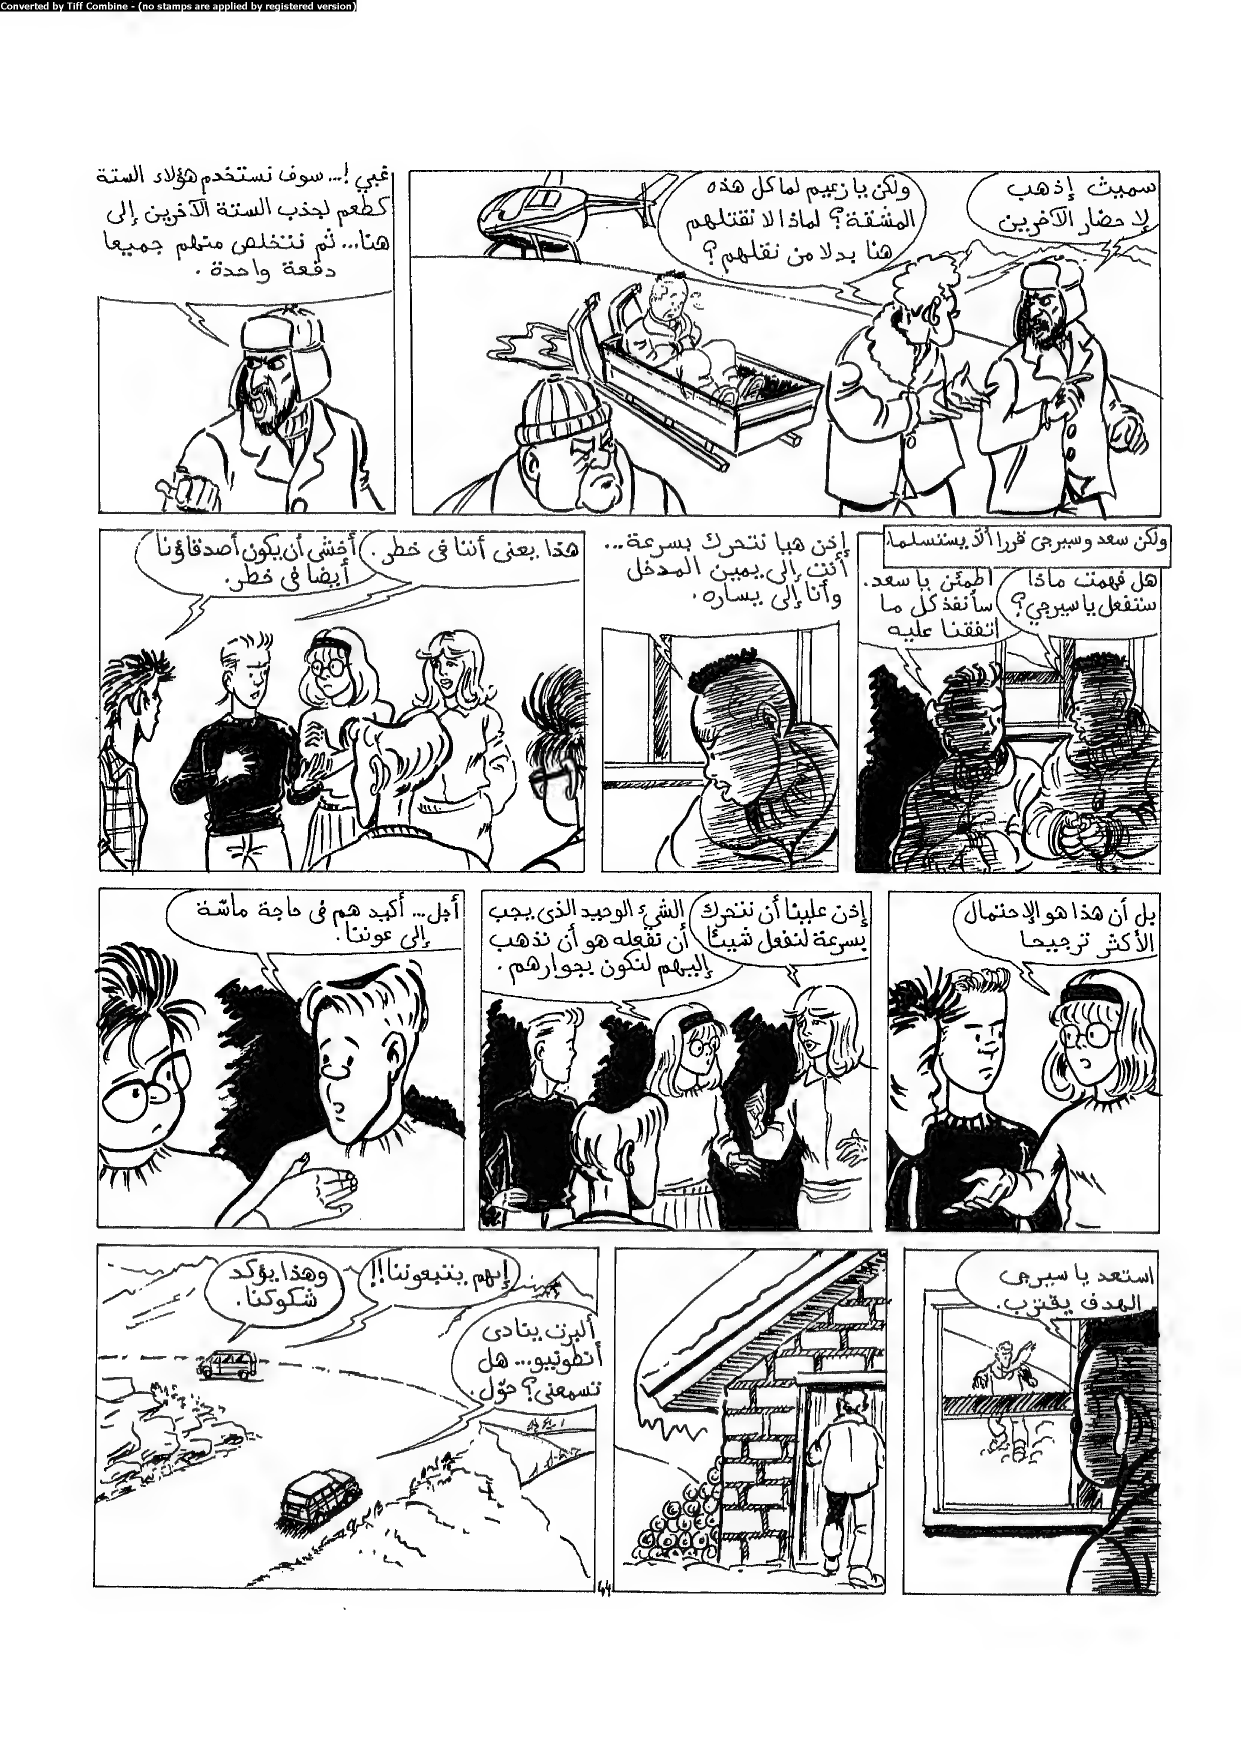 Converted by Tiff Combine - (no stamps are applied by registered version)
سميث إذهب
لإحضار الآخرين
ولكن يا زعيم لما كل هذه
المشقة؟ لماذا لا نقتلهم
هنا بدلا من نقلهم؟
غبي !... سوف نستخدم هؤلاء الستة
كطعم لجذب الستة الآخرين إلى
هنا... ثم نتخلص منهم جميعا
دفعة واحدة .
ولكن سعد وسيرجى قررا ألاّ يستسلما.
هل فهمت ماذا
ستفعل يا سيرجي؟
اطمئن يا سعد.
سأنفذ كل ما
اتفقنا عليه
إذن هيا نتحرك بسرعة...
أنت إلى يمين المدخل
وأنا إلى يساره.
هذا يعنى أننا فى خطر.
أخشى أن يكون أصدقاؤنا
أيضا فى خطر.
بل أن هذا هو الإحتمال
الأكثر ترجيحا
إذن علينا أن نتحرك
بسرعة لنفعل شيئا
الشيء الوحيد الذى يجب
أن نفعله هو أن نذهب
إليهم لنكون بجوارهم.
أجل... أكيد هم فى حاجة ماسّة
إلى عوننا.
استعد يا سيرجى
الهدف يقترب.
إنهم يتبعوننا!!
وهذا يؤكد
شكوكنا.
ألبرت ينادى
أنطونيو... هل
تسمعنى؟ حوّل.
44